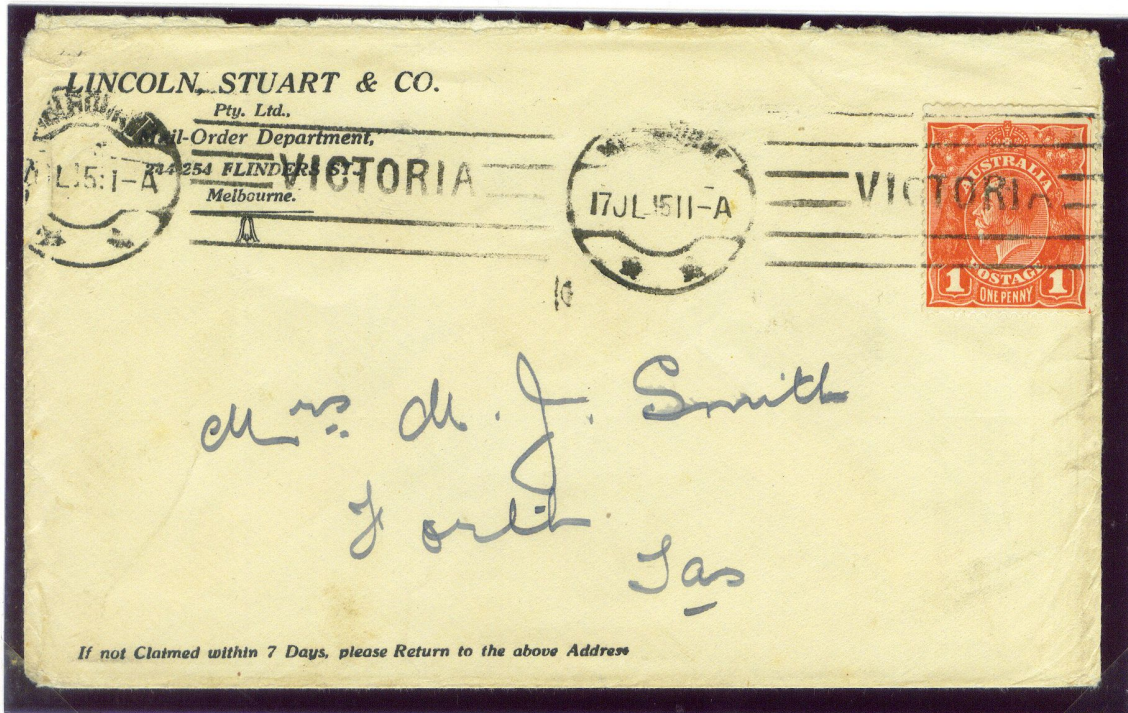 LINCOLN, STUART & CO.
Pty. Ltd.,
Mail-Order Department,
244-254 FLINDERS ST.
Melbourne.
VICTORIA
MELBOURNE
17 JL 15 11-A
VICTORIA
AUSTRALIA
POSTAGE
1 ONE PENNY 1
Mrs. M. J. Smith
Forth
Tas
If not Claimed within 7 Days, please Return to the above Address